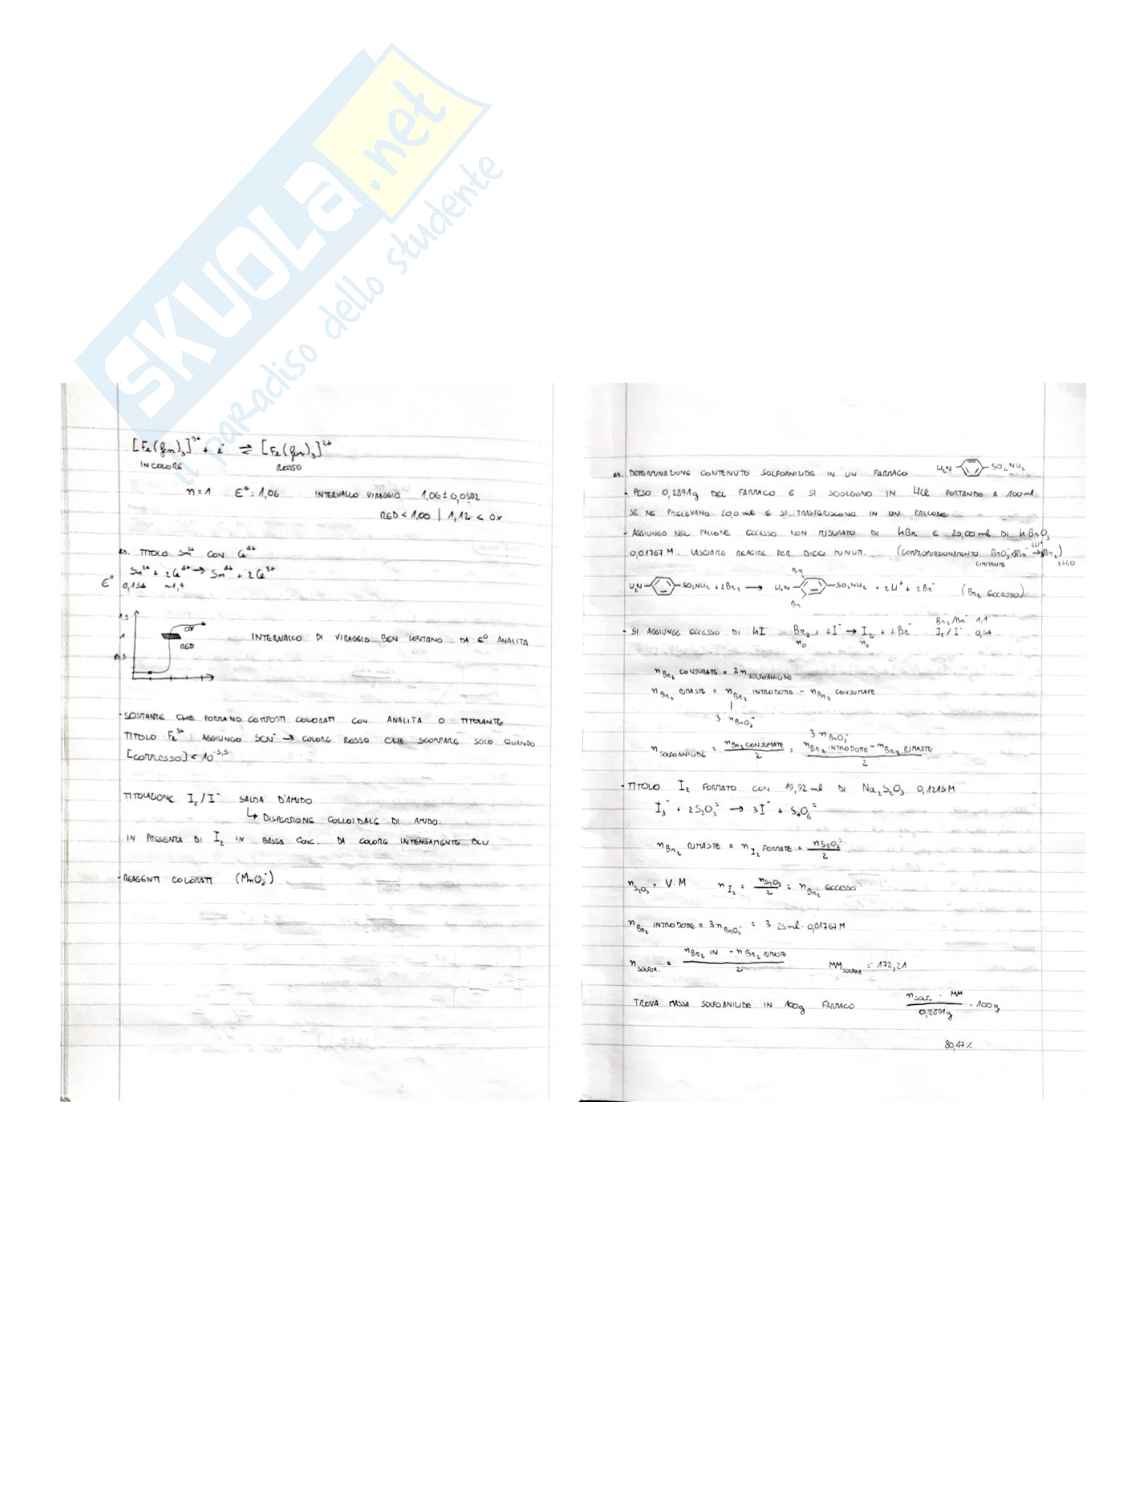 SKUOLA.net
il paradiso dello studente
[Fe(fen)₃]³⁺ + e⁻ ⇌ [Fe(fen)₃]²⁺
INCOLORE ROSSO
n=1 E°=1,06 INTERVALLO VIRAGGIO 1,06±0,0592
RED < 1,00 | 1,12 < OX
ES. TITOLO Sn²⁺ CON Ce⁴⁺
Sn²⁺ + 2Ce⁴⁺ → Sn⁴⁺ + 2Ce³⁺
E° 0,154 ~1,4
1,5
OX
1
RED
0,5
INTERVALLO DI VIRAGGIO BEN LONTANO DA E° ANALITA
- SOSTANZE CHE FORMANO COMPOSTI COLORATI CON ANALITA O TITOLANTE
TITOLO Fe³⁺ AGGIUNGO SCN⁻ → COLORE ROSSO CHE SCOMPARE SOLO QUANDO
[COMPLESSO] < 10⁻⁵,⁵
TITOLAZIONE I₂/I⁻ SALDA D'AMIDO
↳ DISPERSIONE COLLOIDALE DI AMIDO
IN PRESENZA DI I₂ IN BASSA CONC. DA COLORE INTENSAMENTE BLU
- REAGENTI COLORATI (MnO₄⁻)
ES. DETERMINAZIONE CONTENUTO SOLFONILIDE IN UN FARMACO H₂N SO₂NH₂
- PESO 0,2891g DEL FARMACO E SI SCIOLGONO IN HCl PORTANDO A 100 ml
SE NE PRELEVANO 20,0 ml E SI TRASFERISCONO IN UN PALLONE
- AGGIUNGO NEL PALLONE ECCESSO NON MISURATO DI KBr E 25,00 ml DI KBrO₃
0,01767 M. LASCIARE REAGIRE PER DIECI MINUTI. (COMPROPORZIONAMENTO BrO₃⁻ Br⁻ → Br₂)
LIMITANTE
H₂N SO₂NH₂ + 2Br₂ → H₂N SO₂NH₂ + 2H⁺ + 2Br⁻ (Br₂ ECCESSO)
Br
Br
Br₂/Br⁻ 1,1
- SI AGGIUNGE ECCESSO DI KI Br₂ + 2I⁻ → I₂ + 2Br⁻ I₂/I⁻ 0,54
n₀ n₀
n Br₂ CONSUMATE = 2 n SOLFOANILIDE
n Br₂ RIMASTE = n Br₂ INTRODOTTE - n Br₂ CONSUMATE
3 · n BrO₃⁻
3 · n BrO₃⁻
n SOLFOANILIDE = n Br₂ CONSUMATE / 2 = n Br₂ INTRODOTTE - n Br₂ RIMASTE / 2
- TITOLO I₂ FORMATO CON 15,92 ml DI Na₂S₂O₃ 0,1215 M
I₃⁻ + 2S₂O₃²⁻ → 3I⁻ + S₄O₆²⁻
n Br₂ RIMASTE = n I₂ FORMATE = n S₂O₃²⁻ / 2
n S₂O₃ = V · M n I₂ = n S₂O₃ / 2 = n Br₂ ECCESSO
n Br₂ INTRODOTTE = 3 n BrO₃⁻ = 3 · 25 ml · 0,01767 M
n SOLFOA = n Br₂ IN - n Br₂ RIMASTE / 2 MM SOLFOA = 172,21
TROVA MASSA SOLFOANILIDE IN 100g FARMACO n SOLF. · MM / 0,2891g · 100g
80,47%